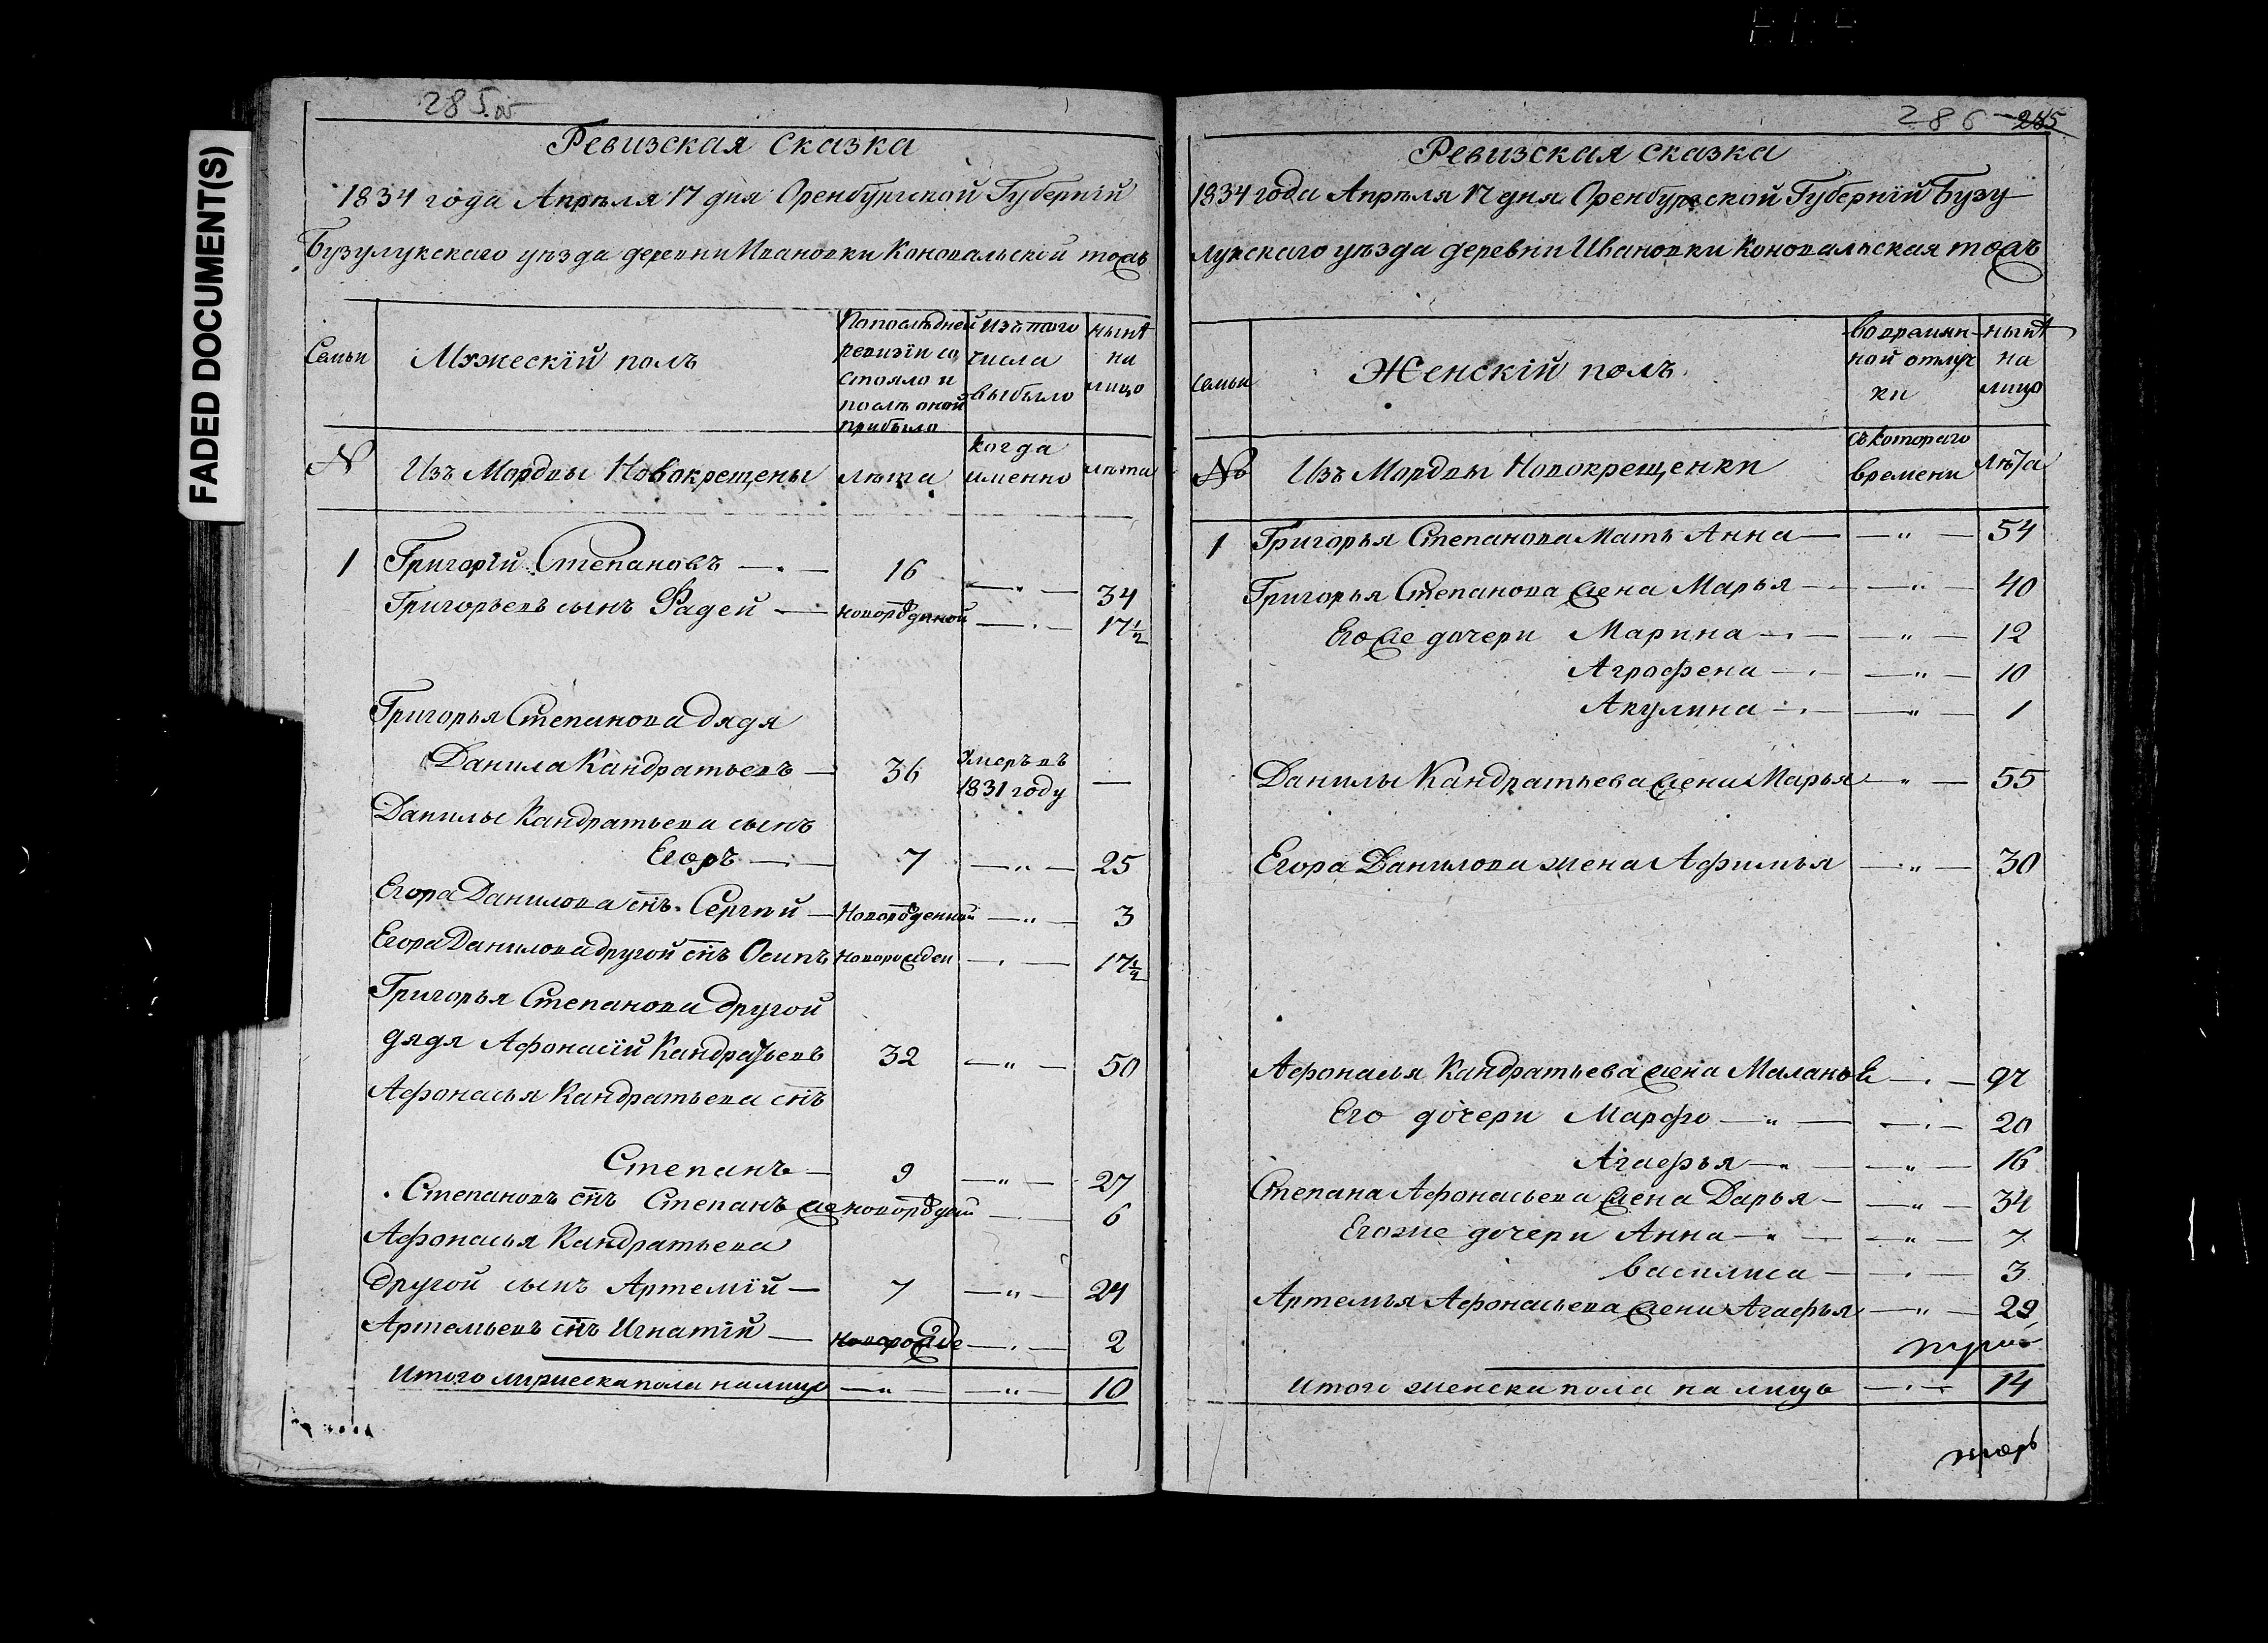 FADED DOCUMENT(S)
285 об
Ревизская сказка
1834 года Апреля 17 дня Оренбургской Губерніи
Бузулукскаго уѣзда деревни Ивановки Коновальской тожъ
Семьи
Мужескій полъ
Попоследней ревизіи состояло и послѣ оной прибыло
изътого числа выбыло
нынѣ на лицо
№
Изъ Мордвы Новокрещены
лѣта
когда именно
лѣта
1 Григорій Степановъ — 16 — " — 34
Григорьевъ сынъ Фадей — новорожденной — 17 1/2
Григорья Степанова дядя
Данила Кандратьевъ — 36 Умеръ въ 1831 году —
Данилы Кандратьева сынъ
Егоръ — 7 — " — 25
Егора Данилова снъ Сергѣй — Новорожденный — " — 3
Егора Данилова другой снъ Осипъ новорожден — 17 1/2
Григорья Степанова другой
дядя Афонасій Кандратьевъ 32 — " — 50
Афонасья Кандратьева снъ
Степанъ — 9 — " — 27
Степановъ снъ Степанъ же новорождый — 6
Афонасья Кандратьева
другой сынъ Артемій — 7 — " — 24
Артемьевъ снъ Игнатій — новорожде — 2
Итого мужеска пола налицо — " — — " — 10
286 285
Ревизская сказка
1834 года Апреля 17 дня Оренбургской Губерніи Бузу
лукскаго уѣзда деревни Ивановки Коновальская тожъ
семьи
Женскій полъ
вовремянной отлучки
нынѣ на лицо
№
Изъ Мордвы Новокрещенки
съ котораго времени
Лѣта
1 Григорья Степанова Мать Анна — — " — 54
Григорья Степанова жена Марья — — " — 40
Егоже дочери Марина — — " — 12
Аграфена — — " — 10
Акулина — — " — 1
Данилы Кандратьева жена Марья — " — 55
Егора Данилова жена Афимья — " — 30
Афонасья Кандратьева жена Маланья —
Его дочери Марфа — " — — 20
Агафья — — " — 16
Степана Афонасьева жена Дарья — — " — 34
Егоже дочери Анна — — " — 7
Василиса — — 3
Артемья Афонасьева жена Агафья — " — 29
Итого женска пола на лицо — 14